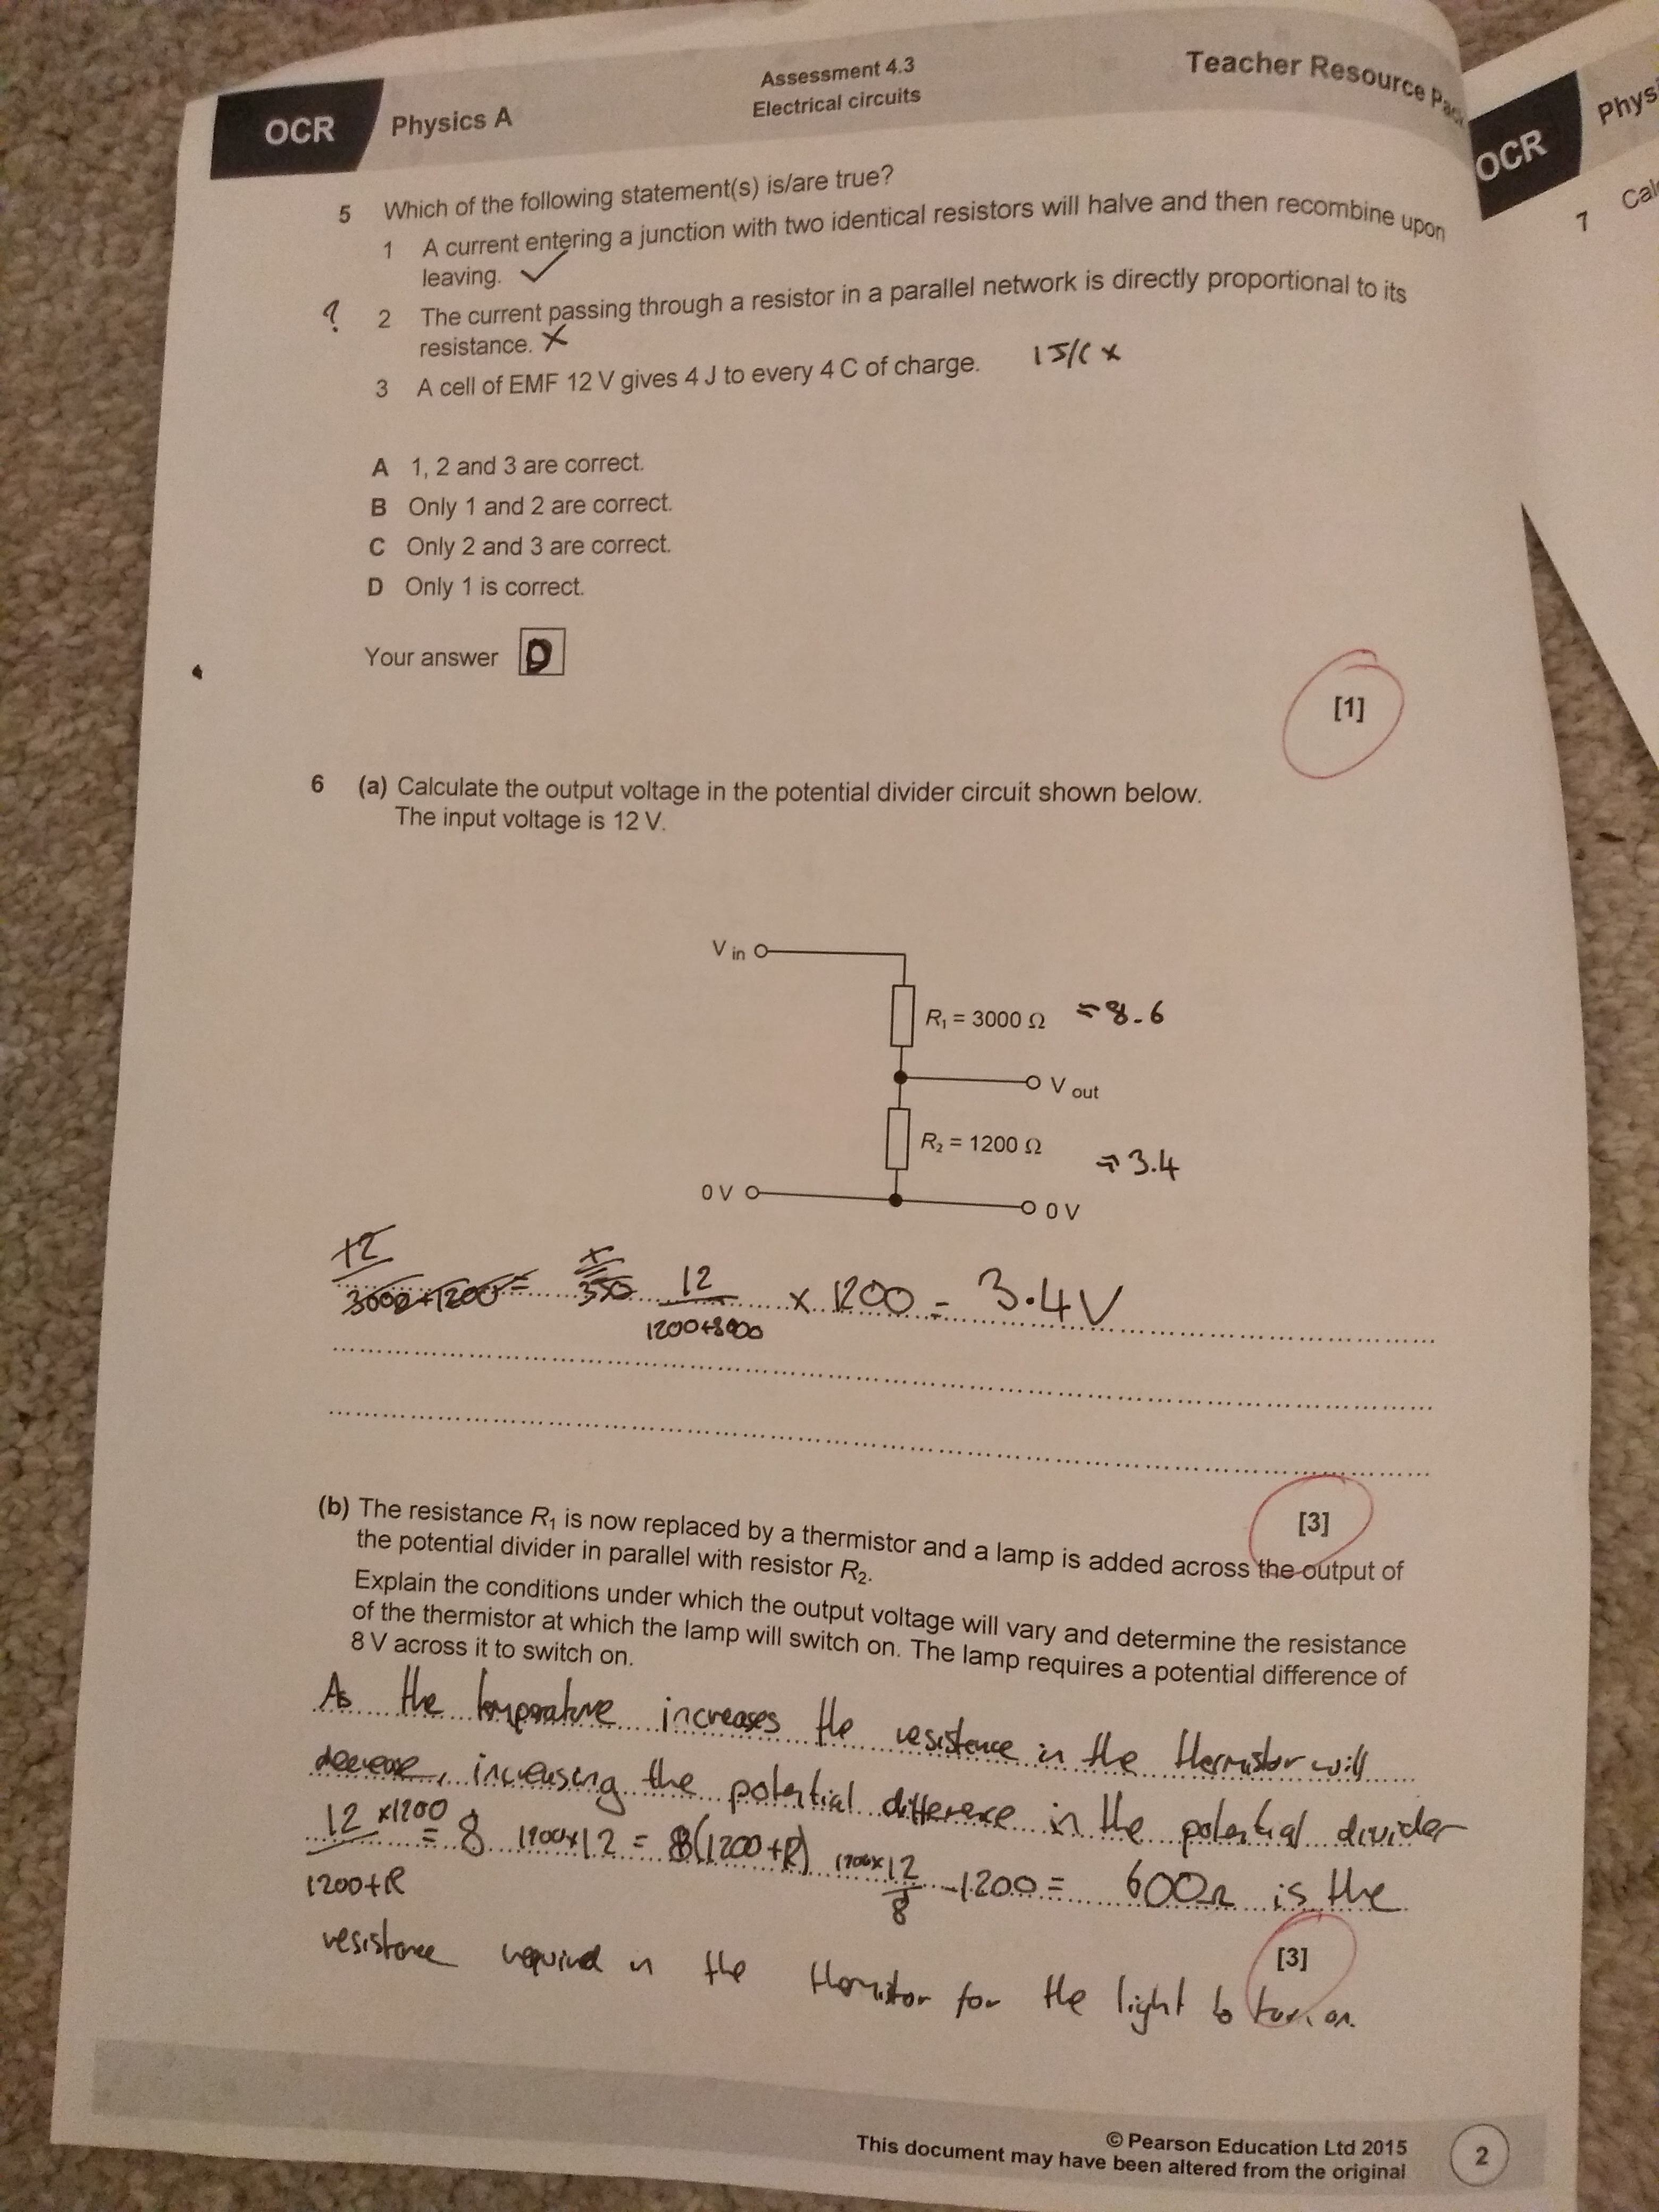 Assessment 4.3
Teacher Resource Pack
OCR
Physics A
Electrical circuits
5 Which of the following statement(s) is/are true?
1 A current entering a junction with two identical resistors will halve and then recombine upon
leaving. ✓
? 2 The current passing through a resistor in a parallel network is directly proportional to its
resistance. ×
3 A cell of EMF 12 V gives 4 J to every 4 C of charge. 1 J/C ×
A 1, 2 and 3 are correct.
B Only 1 and 2 are correct.
C Only 2 and 3 are correct.
D Only 1 is correct.
Your answer D
[1]
6 (a) Calculate the output voltage in the potential divider circuit shown below.
The input voltage is 12 V.
V in
R₁ = 3000 Ω = 8.6
V out
R₂ = 1200 Ω = 3.4
0 V
0 V
12
3000+1200 =
350
12
1200+3000
× 1200 = 3.4V
[3]
(b) The resistance R₁ is now replaced by a thermistor and a lamp is added across the output of
the potential divider in parallel with resistor R₂.
Explain the conditions under which the output voltage will vary and determine the resistance
of the thermistor at which the lamp will switch on. The lamp requires a potential difference of
8 V across it to switch on.
As the temperature increases the resistance in the thermistor will
decrease, increasing the potential difference in the potential divider
12 ×1200 = 8 1200×12 = 8(1200+R) 1200×12 -1200 = 600Ω is the
1200+R 8
resistance required in the thermistor for the light to turn on.
[3]
© Pearson Education Ltd 2015
This document may have been altered from the original
2
OCR
Physi
7 Calc